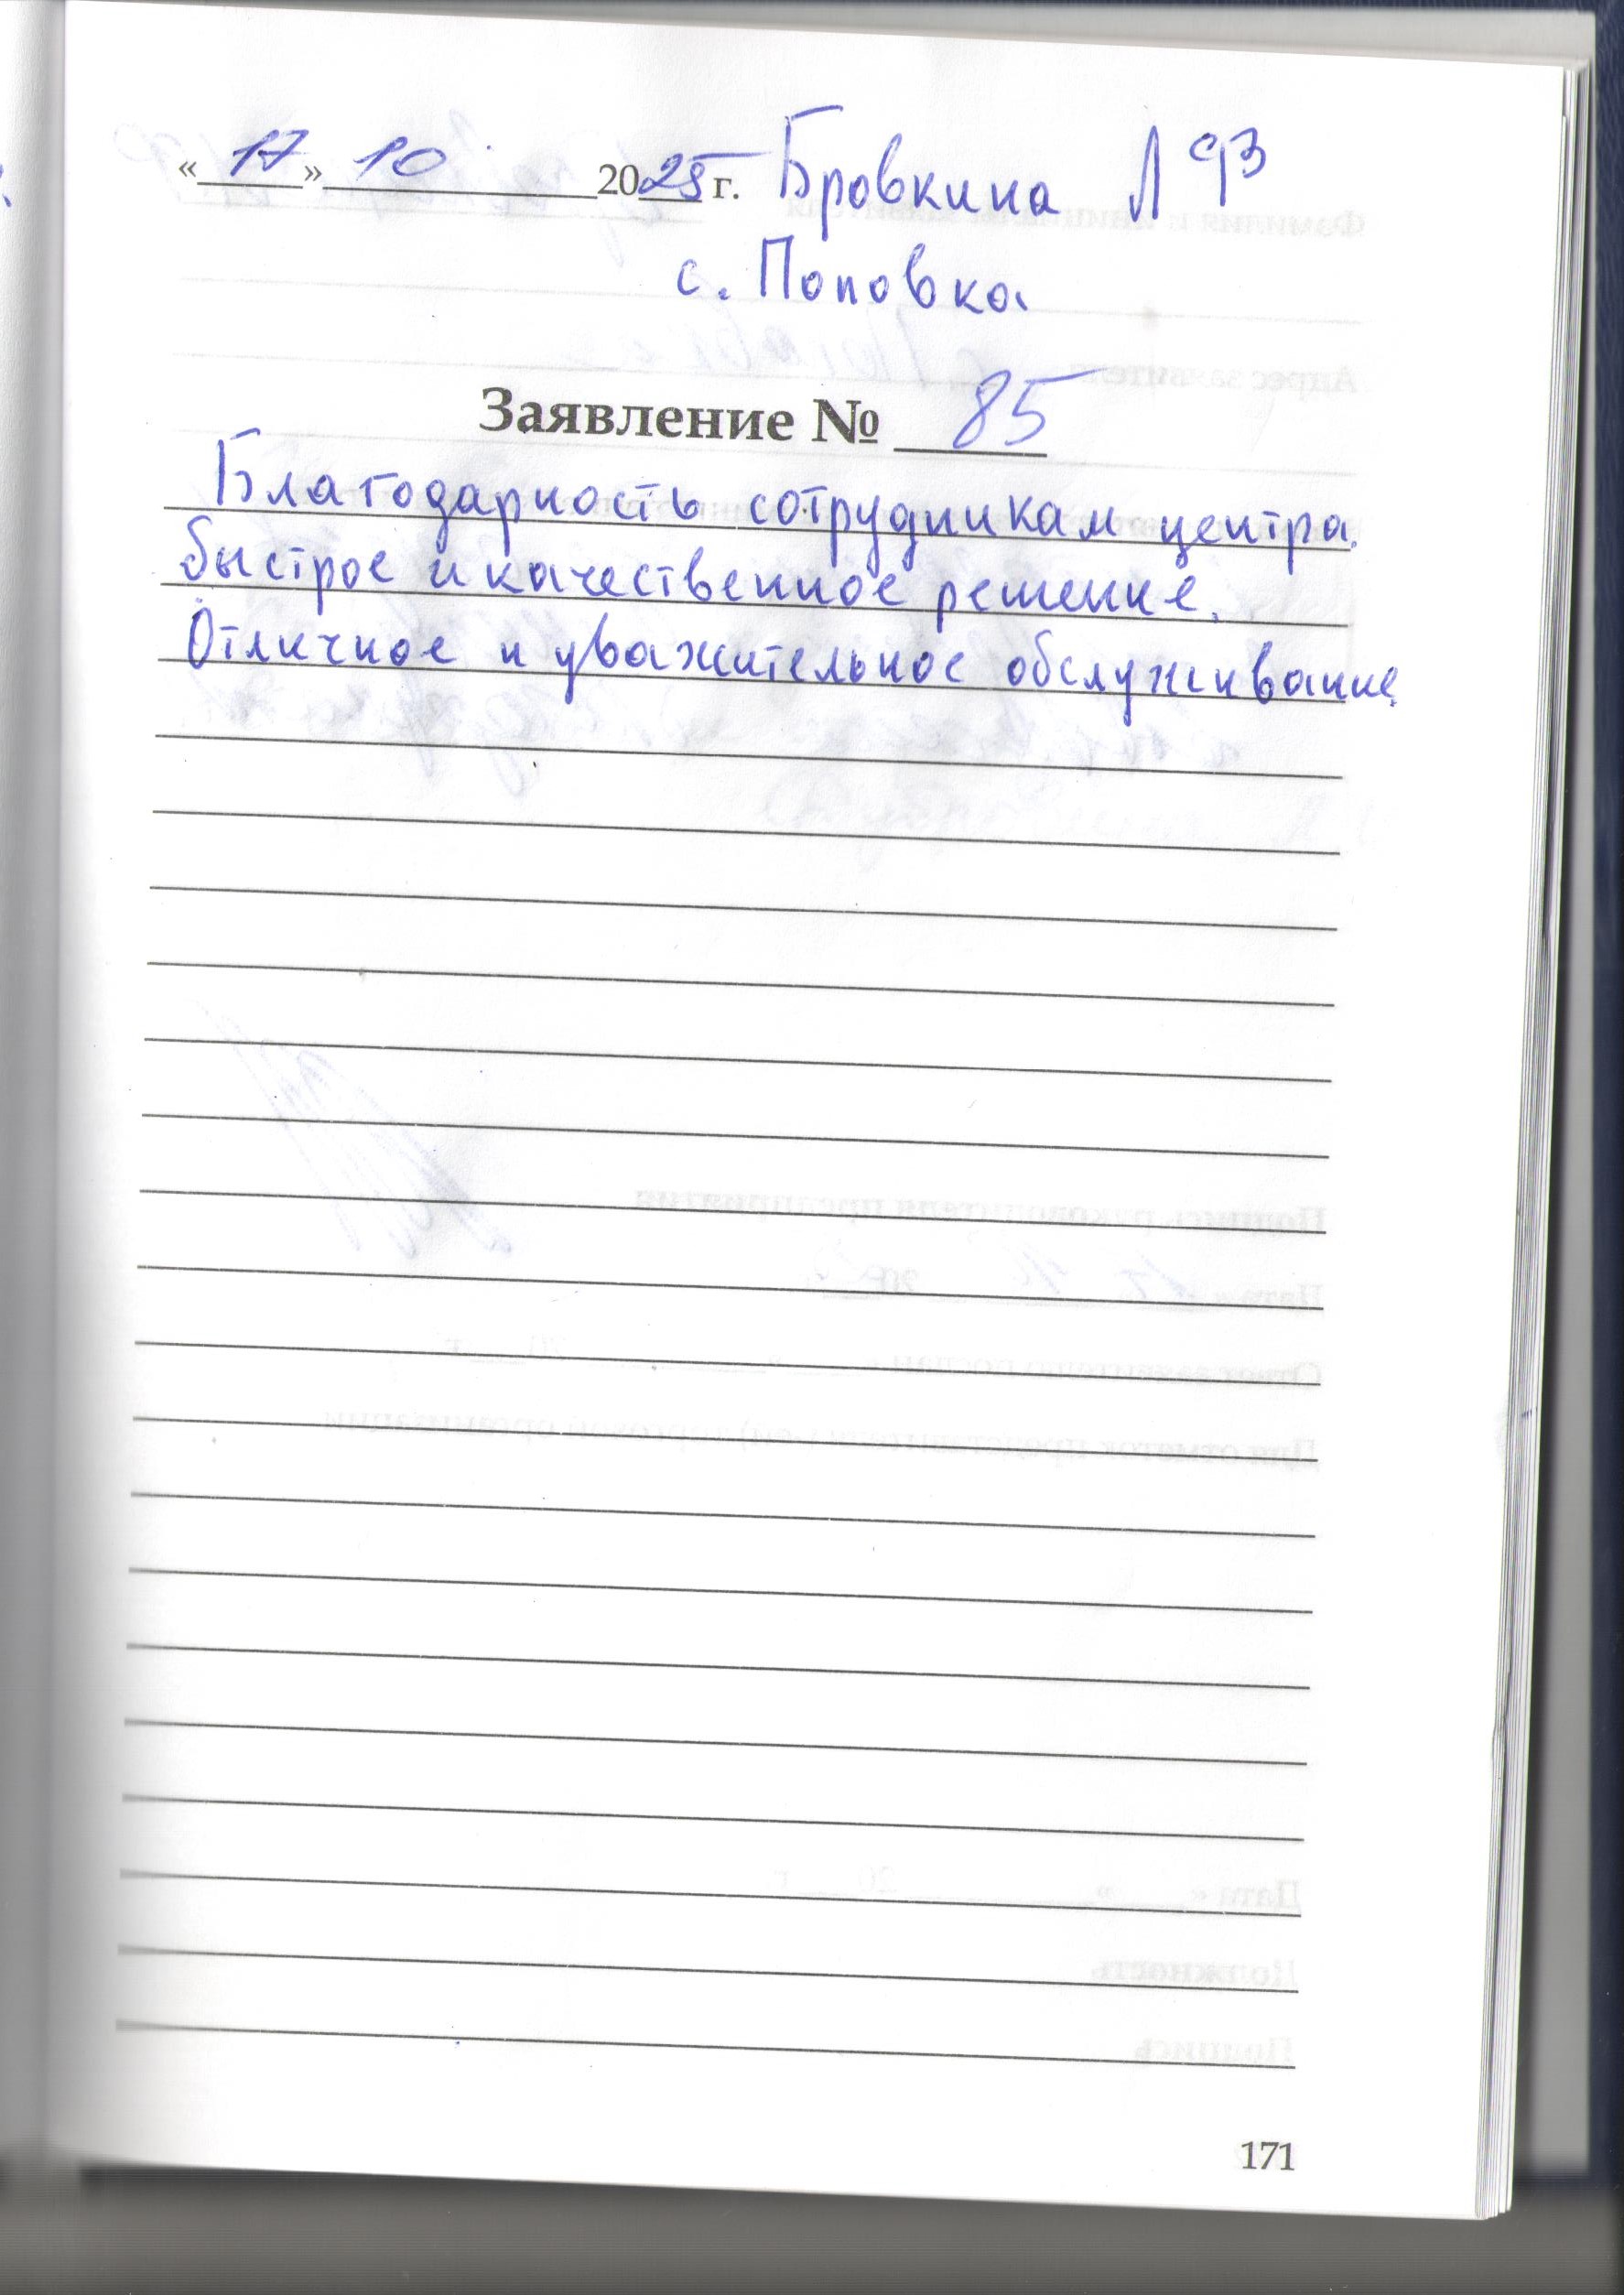 «17» 10 2025 г. Бровкина Л
с. Поповка
Заявление № 85
Благодарность сотрудникам центра.
быстрое и качественное решение.
Отличное и уважительное обслуживание.
171